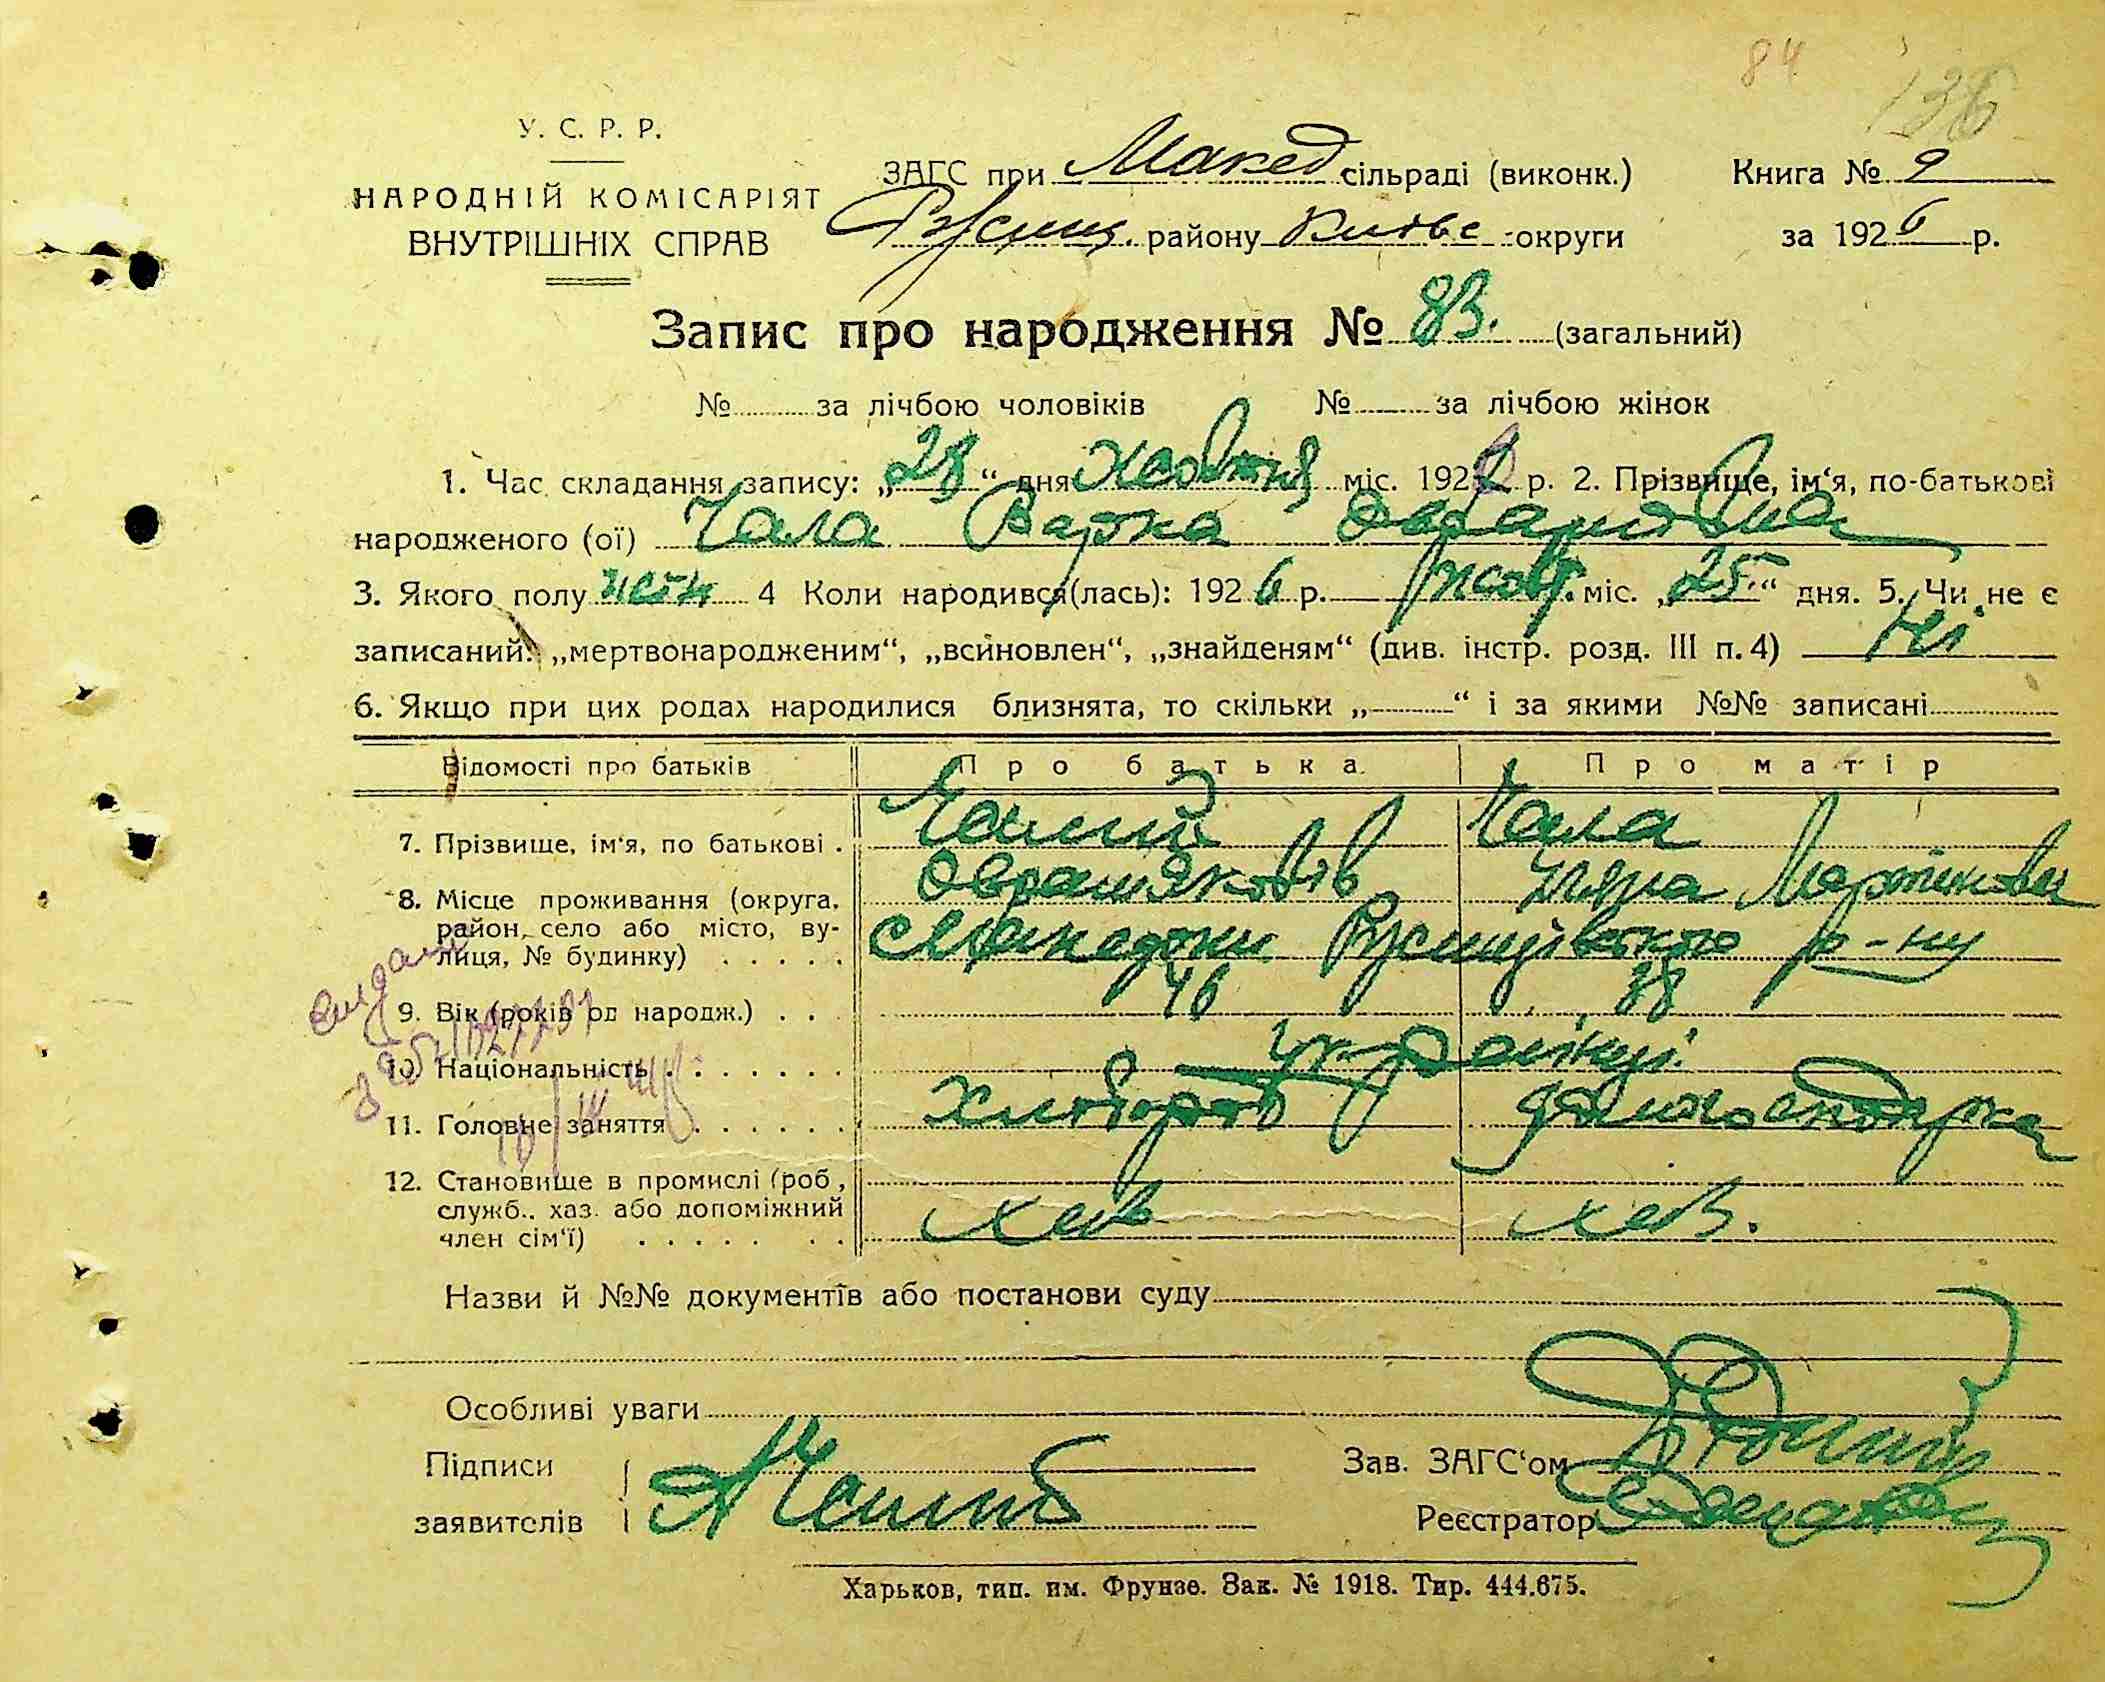 84
136
У. С. Р. Р.
НАРОДНІЙ КОМІСАРІЯТ
ВНУТРІШНІХ СПРАВ
ЗАГС при Макед сільраді (виконк.) Книга № 9
Ржищ. району Київс округи за 1926 р.
Запис про народження № 83. (загальний)
№ за лічбою чоловіків № за лічбою жінок
1. Час складання запису: „28“ дня жовтня міс. 1926 р. 2. Прізвище, ім‘я, по-батькові
народженого (ої) Чала Варка
3. Якого полу жін 4 Коли народився(лась): 1926 р. жовт. міс. „25“ дня. 5. Чи не є
записаний: „мертвонародженим“, „всиновлен“, „знайденям“ (див. інстр. розд. III п. 4) Ні
6. Якщо при цих родах народилися близнята, то скільки „ “ і за якими №№ записані
Відомості про батьків Про батька Про матір
7. Прізвище, ім‘я, по батькові . Чалий Чала
Мартіновна
8. Місце проживання (округа, район, село або місто, вулиця, № будинку) . . . . . с Македони Ржищівського р-ну
9. Вік (років од народж.) . . 46 38
10. Національність . . . . . . . українці
11. Головне заняття . . . . . . . Хлібороб домогосподарка
12. Становище в промислі (роб., служб., хаз. або допоміжний член сім‘ї) . . . . . . .
Назви й №№ документів або постанови суду
Особливі уваги
Підписи
заявителів А Чалий
Зав. ЗАГС‘ом
Реєстратор
Харьков, тип. им. Фрунзе. Зак. № 1918. Тир. 444.675.